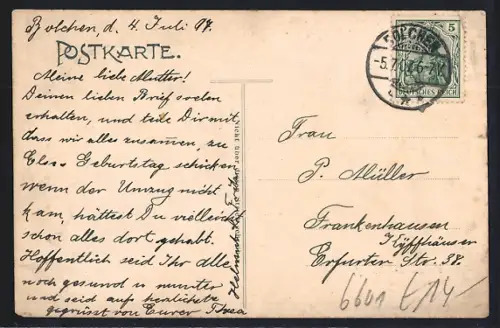 Bolchen, d. 4. Juli 07.
POSTKARTE.
Meine liebe Mutter!
Deinen lieben Brief soeben
erhalten, und teile Dir mit,
dass wir alles zusammen, zu
Geburtstag schicken
wenn der Umzug nicht
kam, hättest Du vielleicht
schon alles dort gehabt.
Hoffentlich seid Ihr alle
noch gesund u munter
und seid aufs herzlichste
gegrüsst von Eurer
BOLCHEN
-5.7.07.6-7
5
DEUTSCHES REICH
Frau
P. Müller
Frankenhausen
Kÿffhäuser
Erfurter Str. 38.
6601 £14